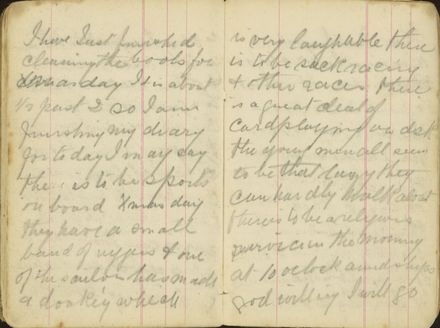 I have Just finished
cleaning the boots for
Xmas day It is about
½ past 2 so I am
finishing my diary
for to day I may say
there is to be sports
on board Xmas day
they have a small
band of niggers & one
of the sailors has made
a donkey which
is very laughable there
is to be sack racing
& other races there
is a great deal of
card playing on deck
the young men all seem
to be that lazy they
can hardly walk about
there is to be a religious
service in the morning
at 10 oclock amidships
god willing I will go